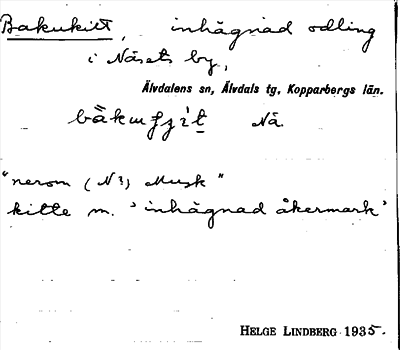 Bakukitt, inhägnad odling
i Näsets by,
Älvdalens sn, Älvdals tg, Kopparbergs län.
Nä
"nerom (N?) Musk"
kitte m. 'inhägnad åkermark'
HELGE LINDBERG 1935.